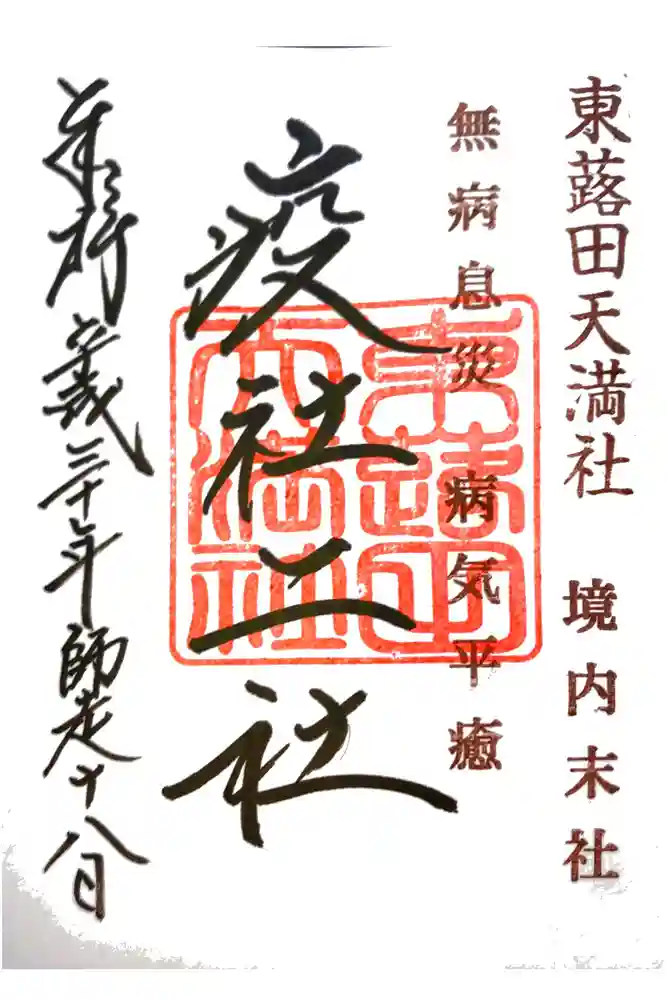 東蕗田天満社 境内末社
無病息災 病気平癒
疫社二社
東蕗田
天満社
奉拝 平成三十年師走十八日